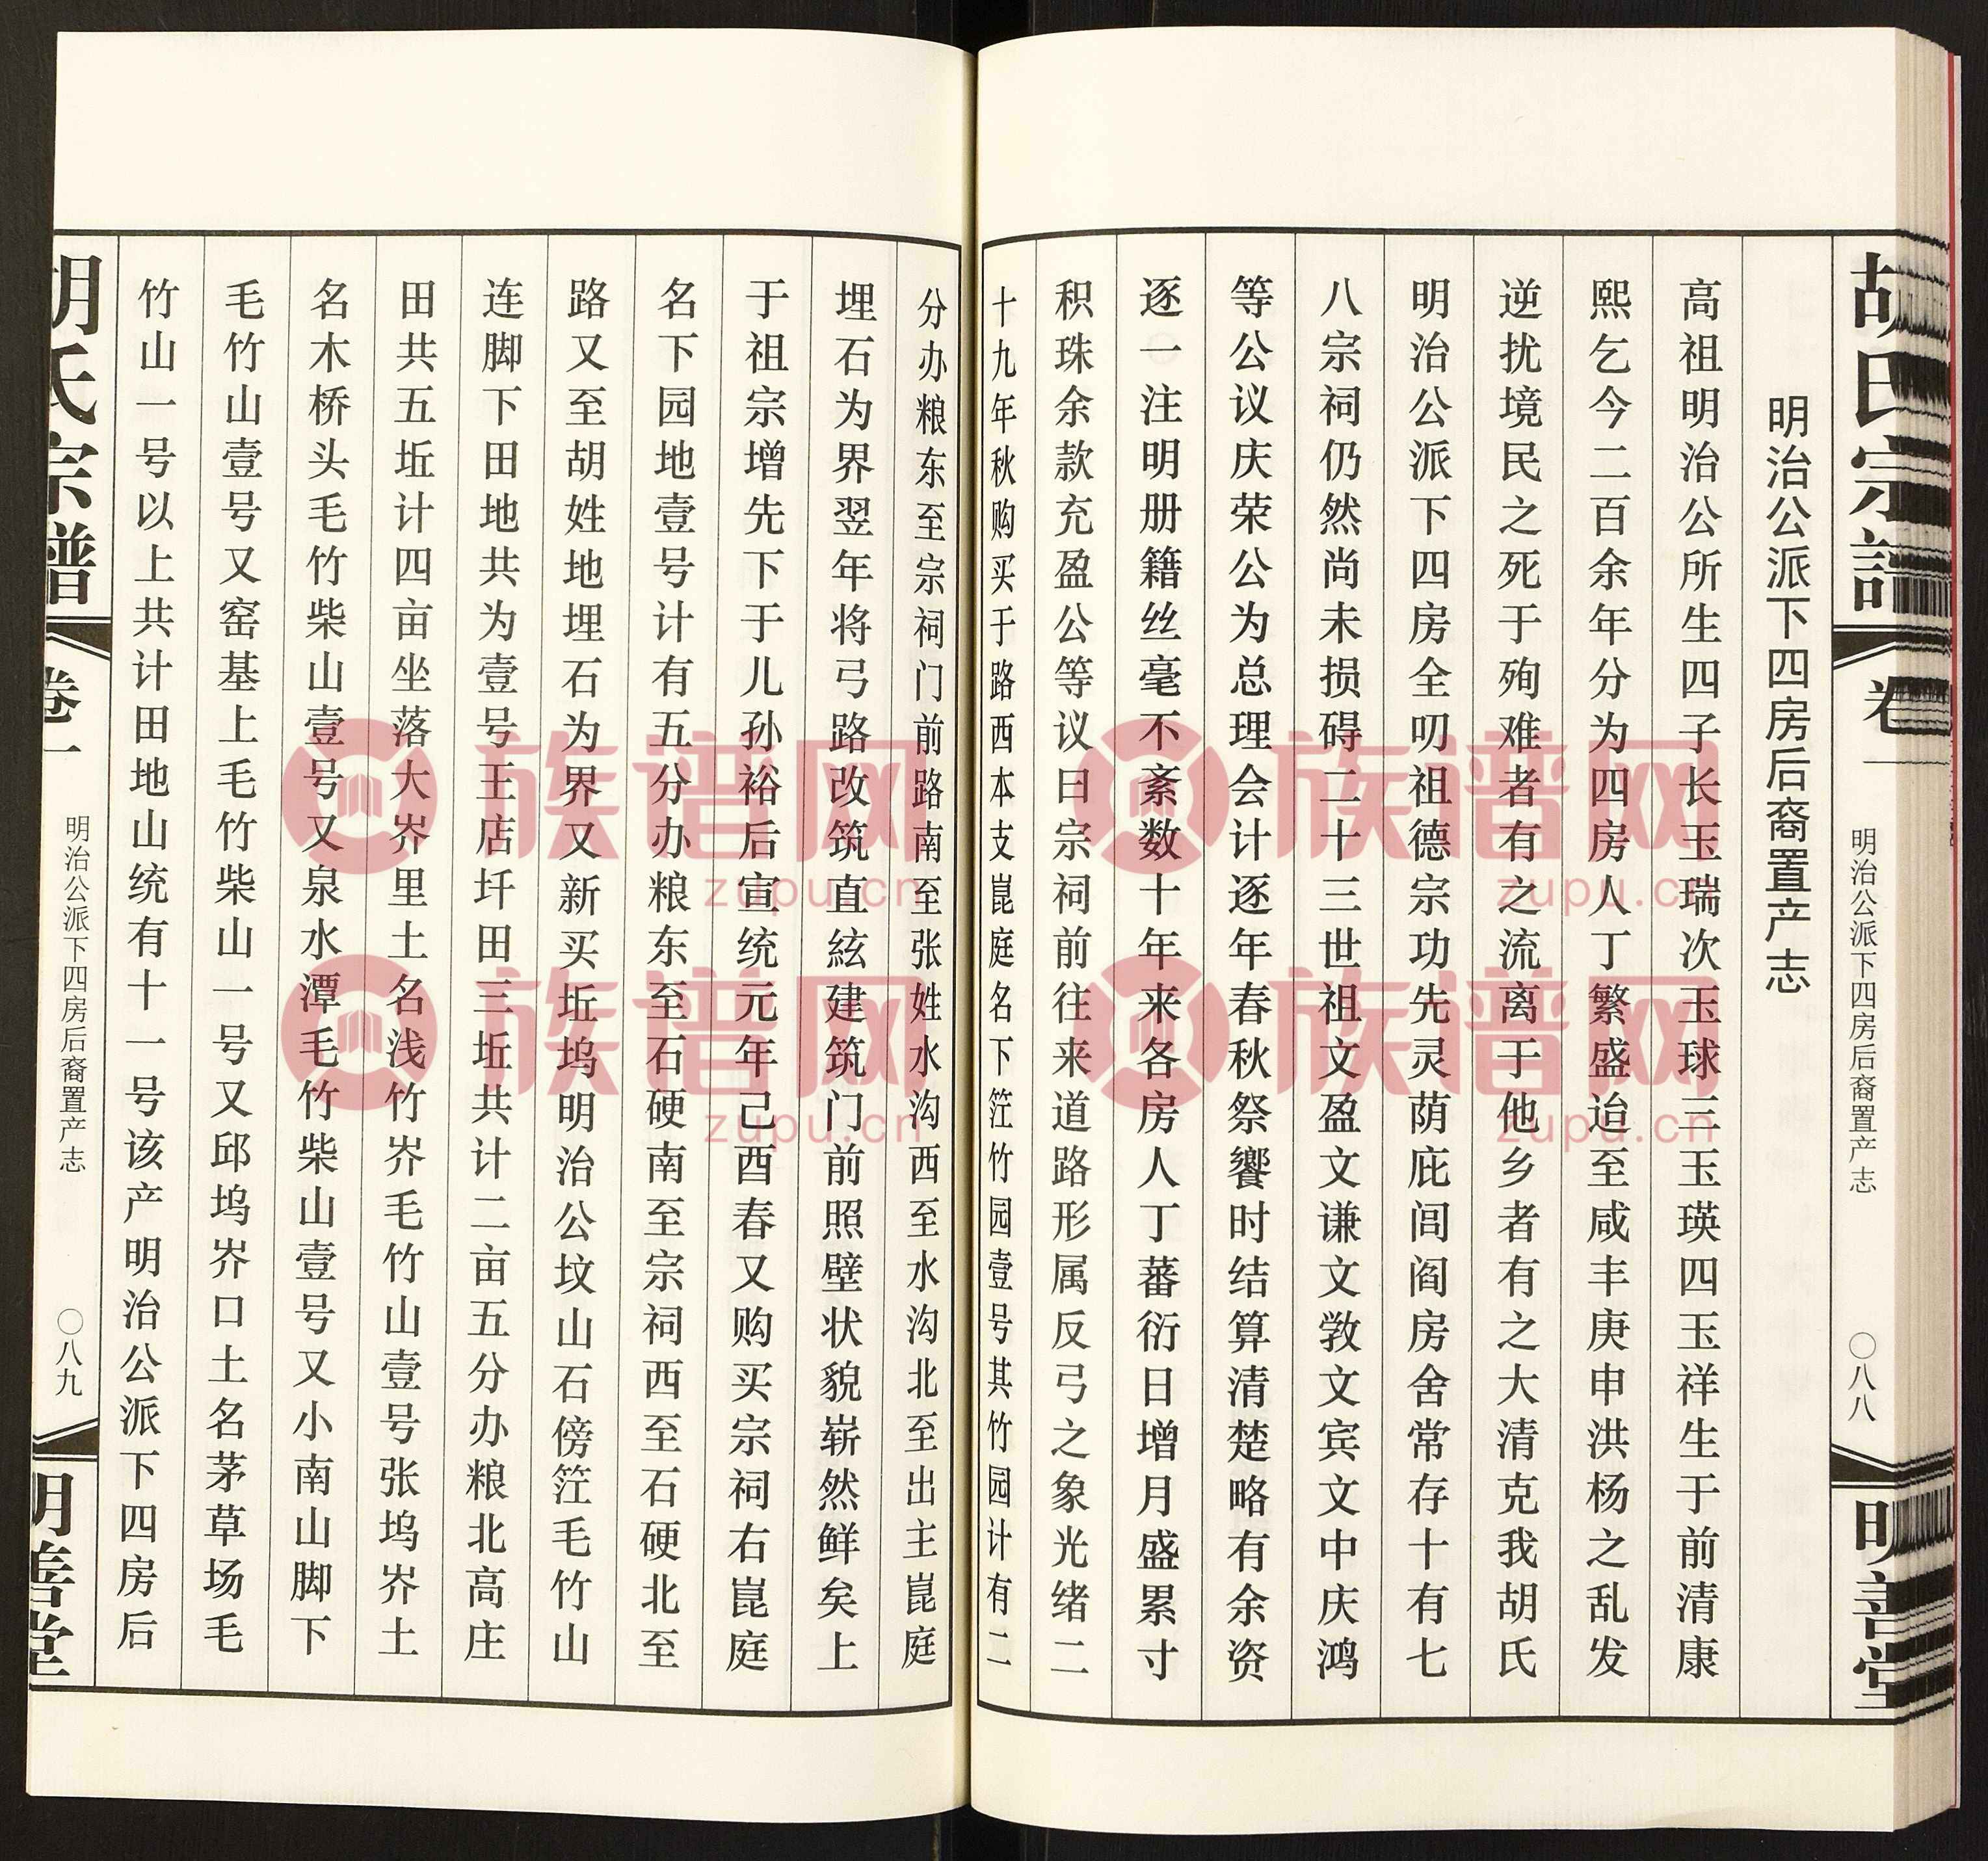 胡氏宗譜
卷一
明治公派下四房后裔置产志
〇八八
明善堂
明治公派下四房后裔置产志
高祖明治公所生四子长玉瑞次玉球三玉瑛四玉祥生于前清康
熙乞今二百余年分为四房人丁繁盛迨至咸丰庚申洪杨之乱发
逆扰境民之死于殉难者有之流离于他乡者有之大清克我胡氏
明治公派下四房全叨祖德宗功先灵荫庇闾阎房舍常存十有七
八宗祠仍然尚未损碍二十三世祖文盈文谦文敩文宾文中庆鸿
等公议庆荣公为总理会计逐年春秋祭飨时结算清楚略有余资
逐一注明册籍丝毫不紊数十年来各房人丁蕃衍日增月盛累寸
积珠余款充盈公等议曰宗祠前往来道路形属反弓之象光绪二
十九年秋购买于路西本支崑庭名下箜竹园壹号其竹园计有二
分办粮东至宗祠门前路南至张姓水沟西至水沟北至出主崑庭
埋石为界翌年将弓路改筑直絃建筑门前照壁状貌崭然鲜矣上
于祖宗增先下于儿孙裕后宣统元年己酉春又购买宗祠右崑庭
名下园地壹号计有五分办粮东至石硬南至宗祠西至石硬北至
路又至胡姓地埋石为界又新买坵坞明治公坟山石傍箜毛竹山
连脚下田地共为壹号王店圩田三坵共计二亩五分办粮北高庄
田共五坵计四亩坐落大岕里土名浅竹岕毛竹山壹号张坞岕土
名木桥头毛竹柴山壹号又泉水潭毛竹柴山壹号又小南山脚下
毛竹山壹号又窑基上毛竹柴山一号又邱坞岕口土名茅草场毛
竹山一号以上共计田地山统有十一号该产明治公派下四房后
胡氏宗譜
卷一
明治公派下四房后裔置产志
〇八九
明善堂
族谱网
zupu.cn
族谱网
zupu.cn
族谱网
zupu.cn
族谱网
zupu.cn